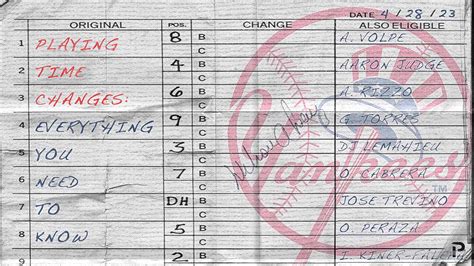 DATE 4/28/23
ORIGINAL POS. CHANGE ALSO ELIGIBLE
1 PLAYING 8 B C A. VOLPE
2 TIME 4 B C AARON JUDGE
3 CHANGES: 6 B C A. RIZZO
4 EVERYTHING 9 B C G. TORRES
5 YOU 3 B C DJ LEMAHIEU
6 NEED 7 B C O. CABRERA
7 TO DH B C JOSE TREVINO
8 KNOW 5 B C O. PERAZA
9 2 B I. KINER-FALEFA
Yankees
TM
P